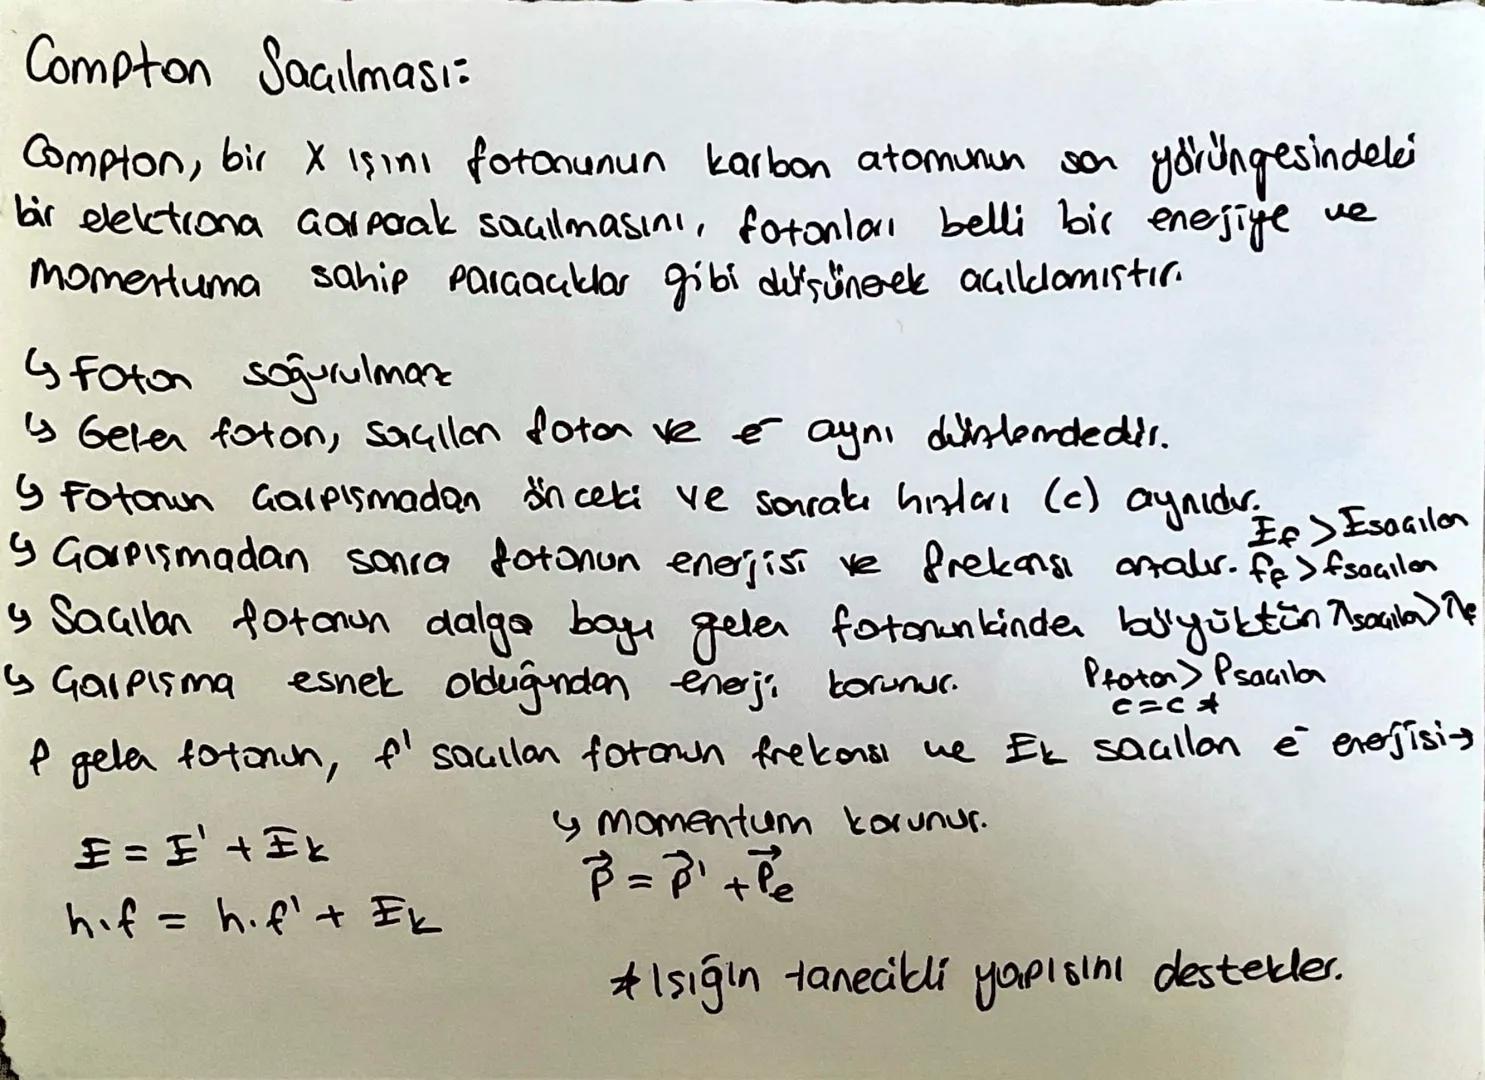 Compton Saçılması:
Compton, bir X ışını fotonunun karbon atomunun son yörüngesindeki
bir elektrona çarparak saçılmasını, fotonları belli bir enerjiye ve
momentuma sahip parçacıklar gibi düşünerek açıklamıştır.
↳ Foton soğurulmaz
↳ Gelen foton, saçılan foton ve e⁻ aynı düzlemdedir.
↳ Fotonun çarpışmadan önceki ve sonraki hızları (c) aynıdır.
↳ Çarpışmadan sonra fotonun enerjisi ve frekansı azalır. E_f > E_saçılan
f_f > f_saçılan
↳ Saçılan fotonun dalga boyu gelen fotonunkinden büyüktür λ_saçılan > λ_f
↳ Çarpışma esnek olduğundan enerji korunur. P_foton > P_saçılan
c = c *
f gelen fotonun, f' saçılan fotonun frekansı ve Ek saçılan e⁻ enerjisi →
E = E' + Ek
h.f = h.f' + Ek
↳ momentum korunur.
P⃗ = P⃗' + P⃗e
* Işığın tanecikli yapısını destekler.